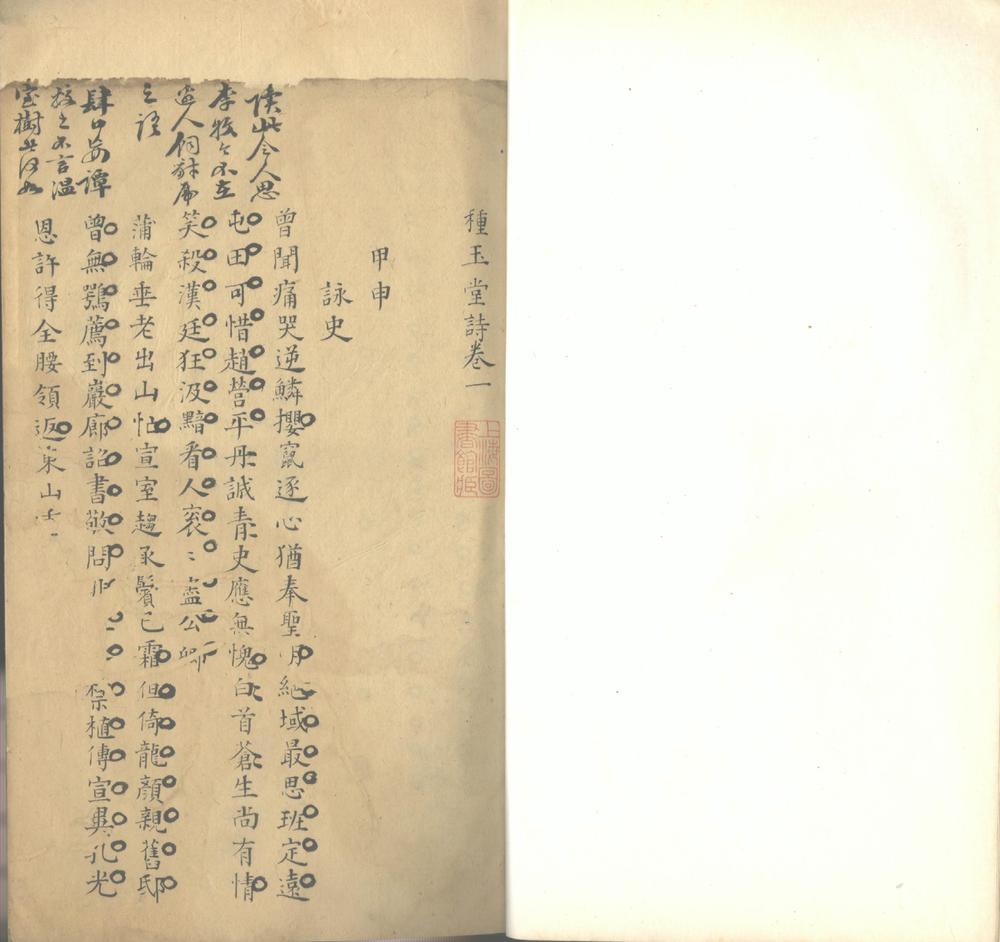 種玉堂詩卷一
上海圖書館藏
甲申
詠史
讀此令人思
之語
之不言溫
室樹
曾聞痛哭逆鱗攖竄逐心猶奉聖明絕域最思班定遠
屯田可惜趙營平丹誠青史應無愧白首蒼生尚有情
笑殺漢廷狂汲黯看人袞〻盡公卿
蒲輪垂老出山忙宣室趨承鬢已霜但倚龍顏親舊邸
曾無鶚薦到巖廊詔書敬問禁植傳宣異孔光
恩許得全腰領返東山